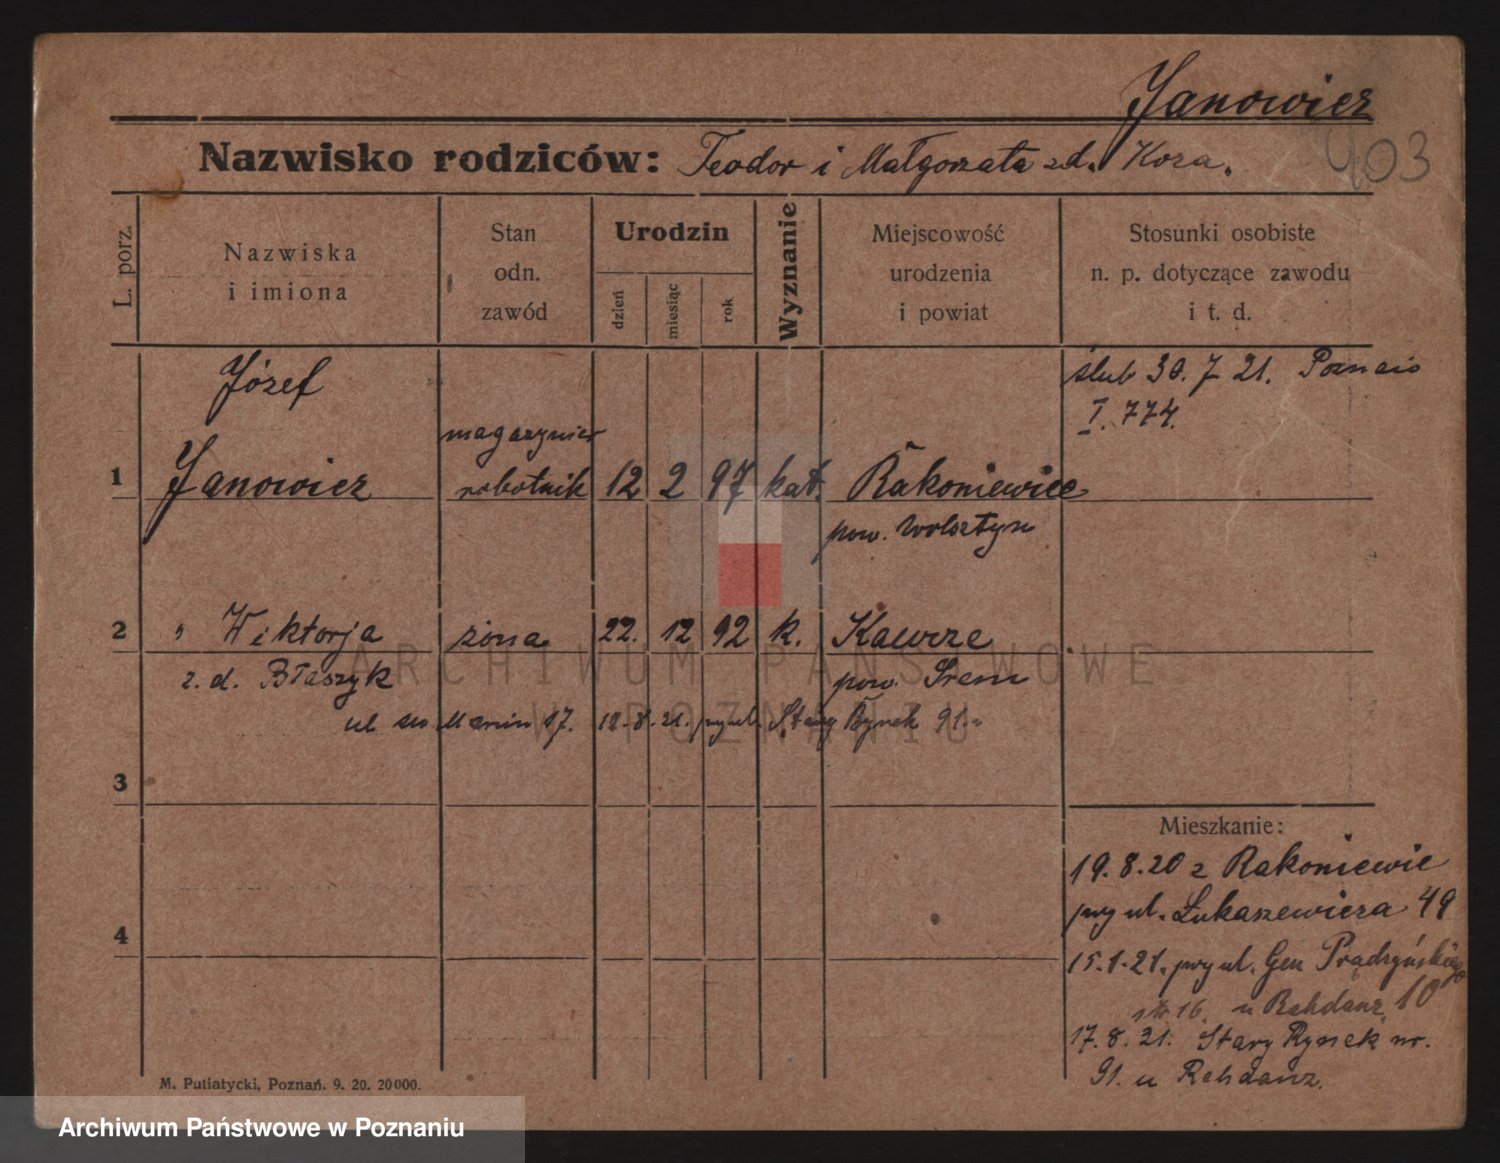 Janowicz
Nazwisko rodziców: Teodor i Małgorzata zd. Koza.
903
L. porz.
Nazwiska
i imiona
Stan
odn.
zawód
Urodzin
dzień
miesiąc
rok
Wyznanie
Miejscowość
urodzenia
i powiat
Stosunki osobiste
n. p. dotyczące zawodu
i t. d.
Józef
ślub 30. 7 21.
I. 774.
magazynier
1 Janowicz robotnik 12 2 97 kat. Rakoniewice
pow. Wolsztyn
2 " Wiktorja żona 22. 12 92 k. Kawcze
z. d. Błaszyk pow. Śrem
ul. św. Marcin 17. 12.8.21. Stary Rynek 91.
3
Mieszkanie:
19.8.20 z Rakoniewic
przy ul. Łukaszewicza 49
4
15.1.21. przy ul. Gen Prądzyńskiego
16. u Rehdanz 10
17.8.21. Stary Rynek nr.
91. u Rehdanz.
M. Putiatycki, Poznań. 9. 20. 20000.
ARCHIWUM PAŃSTWOWE
W POZNANIU
Archiwum Państwowe w Poznaniu